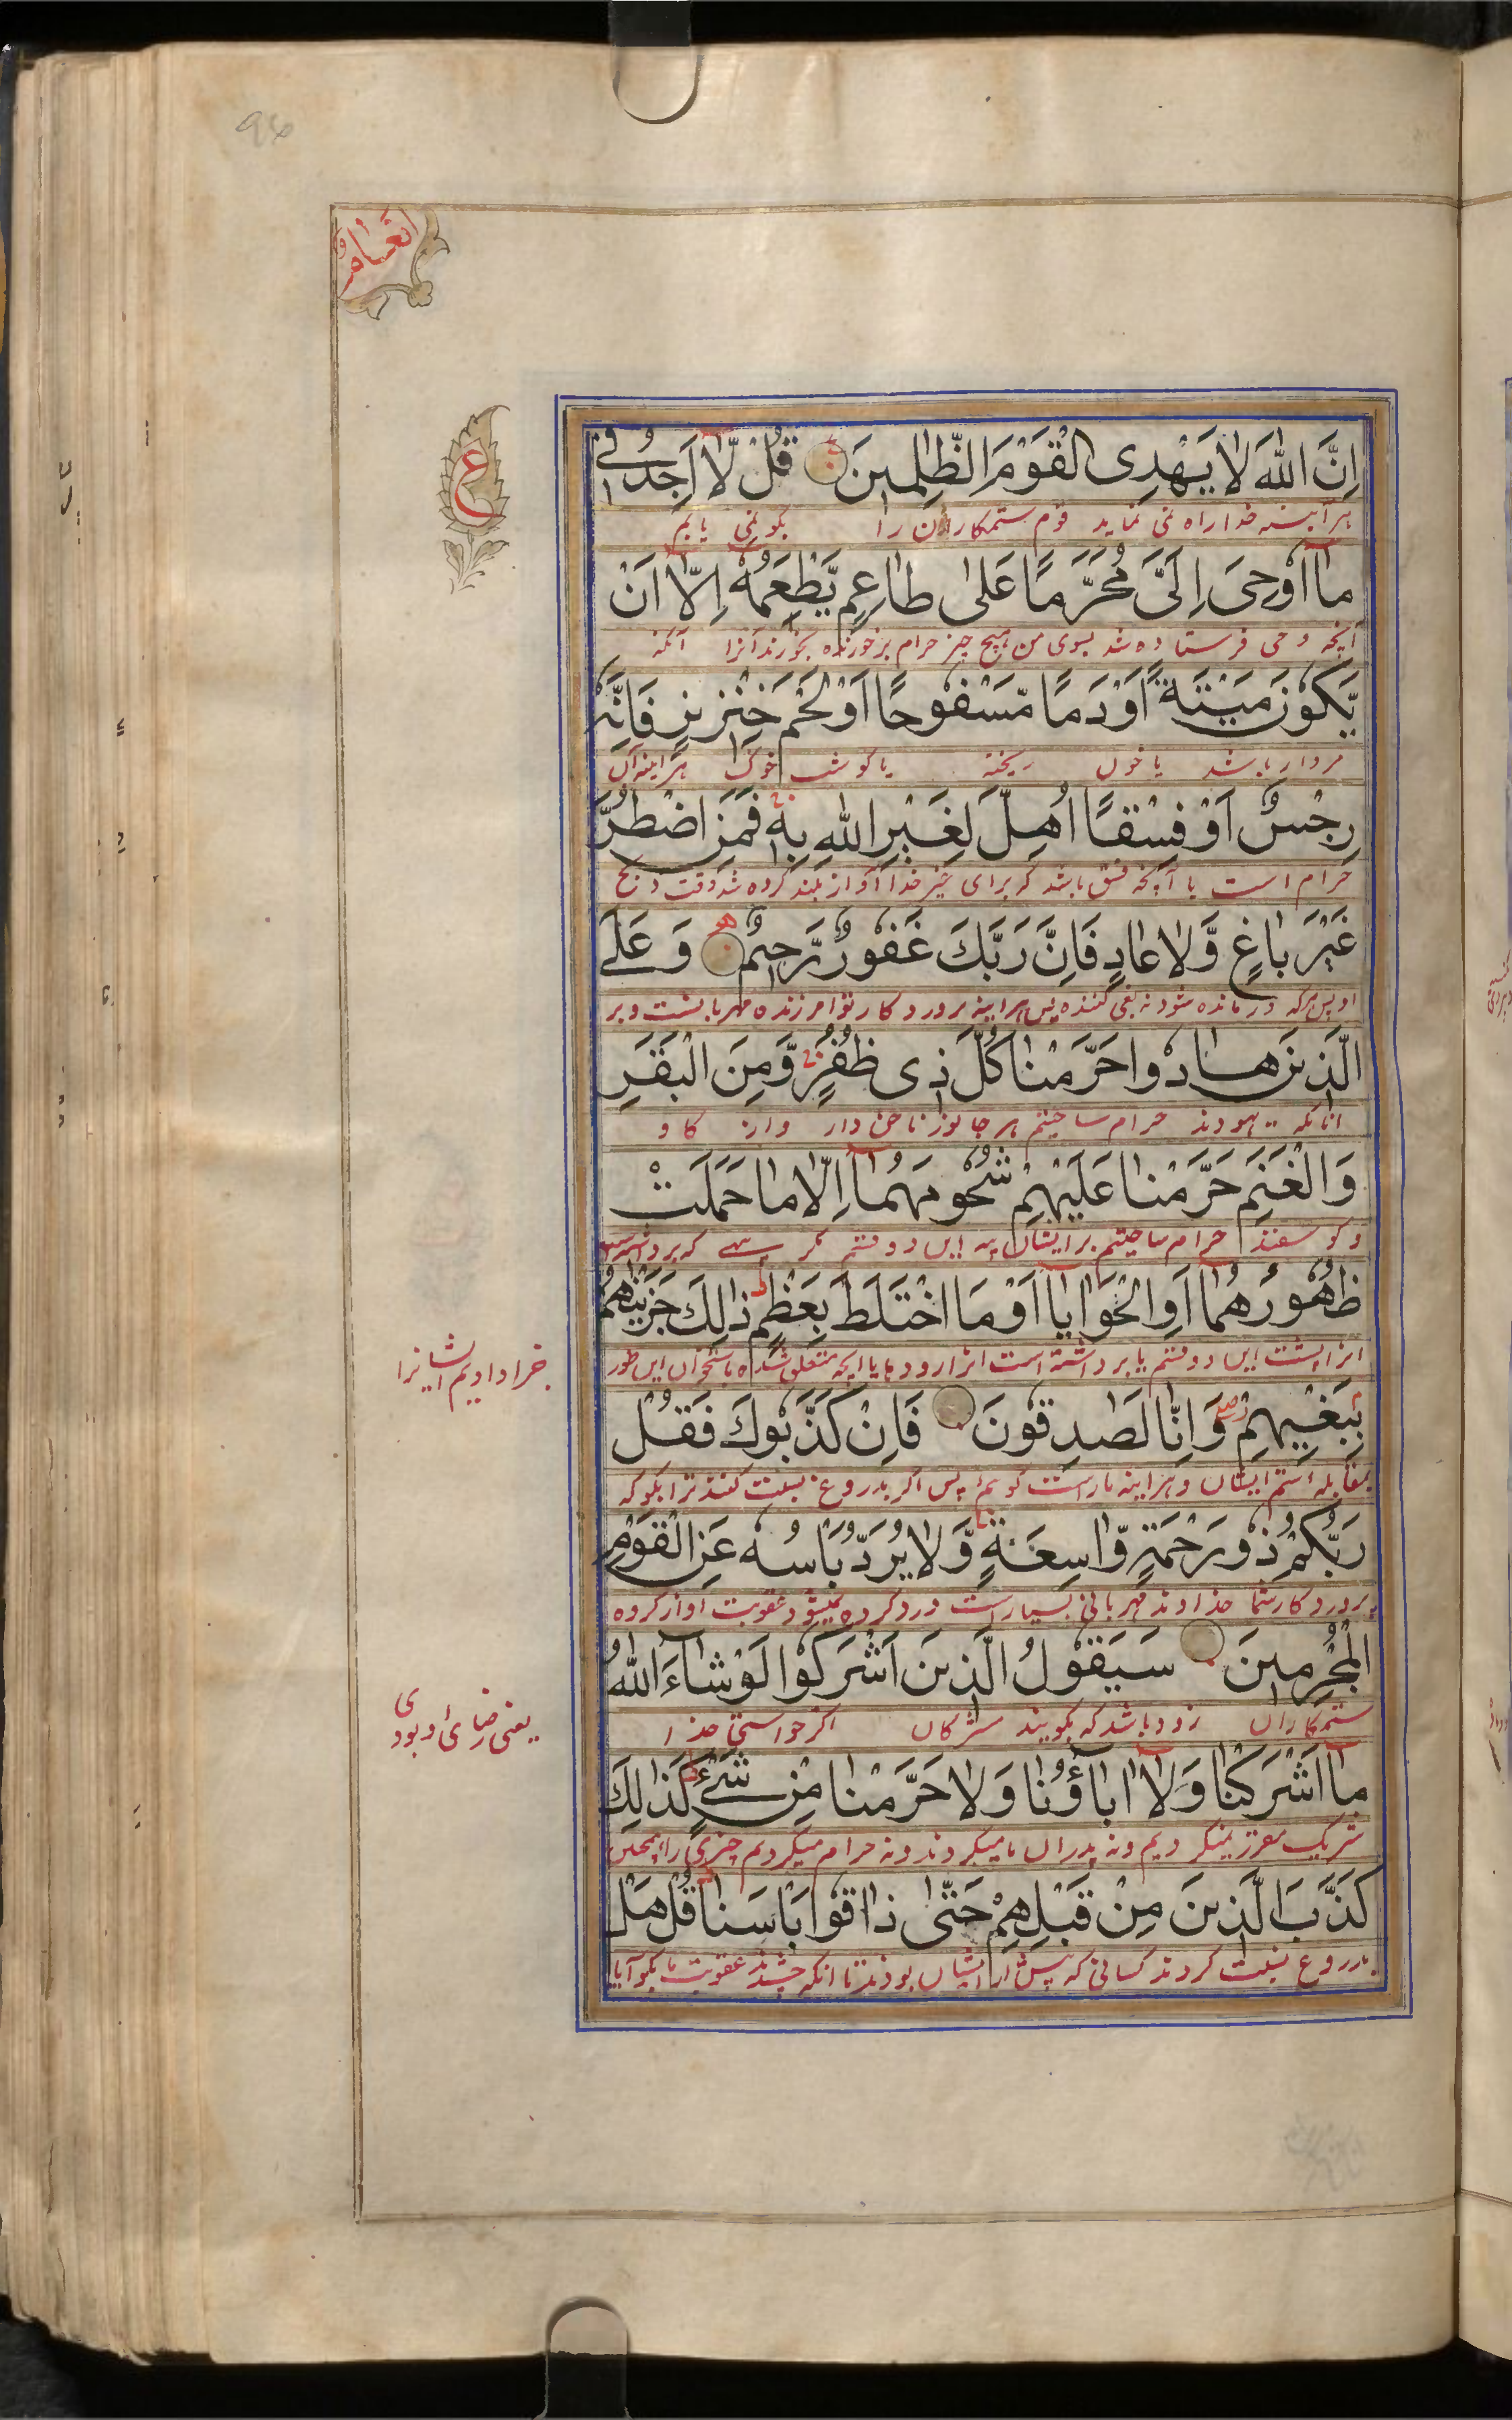 انعام
ع
اِنَّ اللّٰهَ لَا یَهْدِی الْقَوْمَ الظّٰلِمِیْنَ قُلْ لَّاۤ اَجِدُ فِیْ
هرآینه خدا راه نمی نماید قوم ستمکاران را بکو نمی یابم
مَاۤ اُوْحِیَ اِلَیَّ مُحَرَّمًا عَلٰی طَاعِمٍ یَّطْعَمُهٗۤ اِلَّاۤ اَنْ
آنچه وحی فرستاده شد بسوی من هیچ چیز حرام بر خورنده بخورند آنرا آنکه
یَّكُوْنَ مَیْتَةً اَوْ دَمًا مَّسْفُوْحًا اَوْ لَحْمَ خِنْزِیْرٍ فَاِنَّهٗ
مردار باشد یا خون ریخته یا کوشت خوک هرآینه آن
رِجْسٌ اَوْ فِسْقًا اُهِلَّ لِغَیْرِ اللّٰهِ بِهٖ فَمَنِ اضْطُرَّ
حرام است یا آنچه فسق باشد که برای غیر خدا آواز بلند کرده شد وقت ذبح
غَیْرَ بَاغٍ وَّلَا عَادٍ فَاِنَّ رَبَّكَ غَفُوْرٌ رَّحِیْمٌ وَ عَلَی
او پس هرکه درمانده شود نه بغی کننده پس هرآینه پروردکار تو آمرزنده مهربانست و بر
الَّذِیْنَ هَادُوْا حَرَّمْنَا كُلَّ ذِیْ ظُفُرٍ وَّمِنَ الْبَقَرِ
آنانکه یهودند حرام ساختیم هر جانور ناخن دار و از کاو
وَالْغَنَمِ حَرَّمْنَا عَلَیْهِمْ شُحُوْمَهُمَاۤ اِلَّا مَا حَمَلَتْ
و کوسفند حرام ساختیم بر ایشان پیه این دو قسم مکر پیهی که برداشته
ظُهُوْرُهُمَاۤ اَوِ الْحَوَایَاۤ اَوْ مَا اخْتَلَطَ بِعَظْمٍ ذٰلِكَ جَزَیْنٰهُمْ
آنرا پشت این دو قسم یا برداشته است آنرا رودها یا آنچه متعلق شده باستخوان این طور
جزا دادیم ایشانرا
بِبَغْیِهِمْ وَاِنَّا لَصٰدِقُوْنَ فَاِنْ كَذَّبُوْكَ فَقُلْ
بمقابله ستم ایشان و هرآینه ما راست کوئیم پس اکر بدروغ نسبت کنند ترا بکو که
رَبُّكُمْ ذُوْ رَحْمَةٍ وَّاسِعَةٍ وَّلَا یُرَدُّ بَاْسُهٗ عَنِ الْقَوْمِ
پروردکار شما خداوند مهربانی بسیار است و رد کرده نمیشود عقوبت او از کروه
الْمُجْرِمِیْنَ سَیَقُوْلُ الَّذِیْنَ اَشْرَكُوْا لَوْ شَآءَ اللّٰهُ
ستمکاران زود باشد که بکویند مشرکان اکر خواستی خدا
یعنی رضای وی بودی
مَاۤ اَشْرَكْنَا وَلَاۤ اٰبَآؤُنَا وَلَا حَرَّمْنَا مِنْ شَیْءٍ كَذٰلِكَ
شریک مقرر نمیکردیم و نه پدران ما میکردند و نه حرام میکردیم چیزی را همچنین
كَذَّبَ الَّذِیْنَ مِنْ قَبْلِهِمْ حَتّٰی ذَاقُوْا بَاْسَنَا قُلْ هَلْ
بدروغ نسبت کردند کسانی که پیش از ایشان بودند تا آنکه چشیدند عقوبت ما بکو آیا